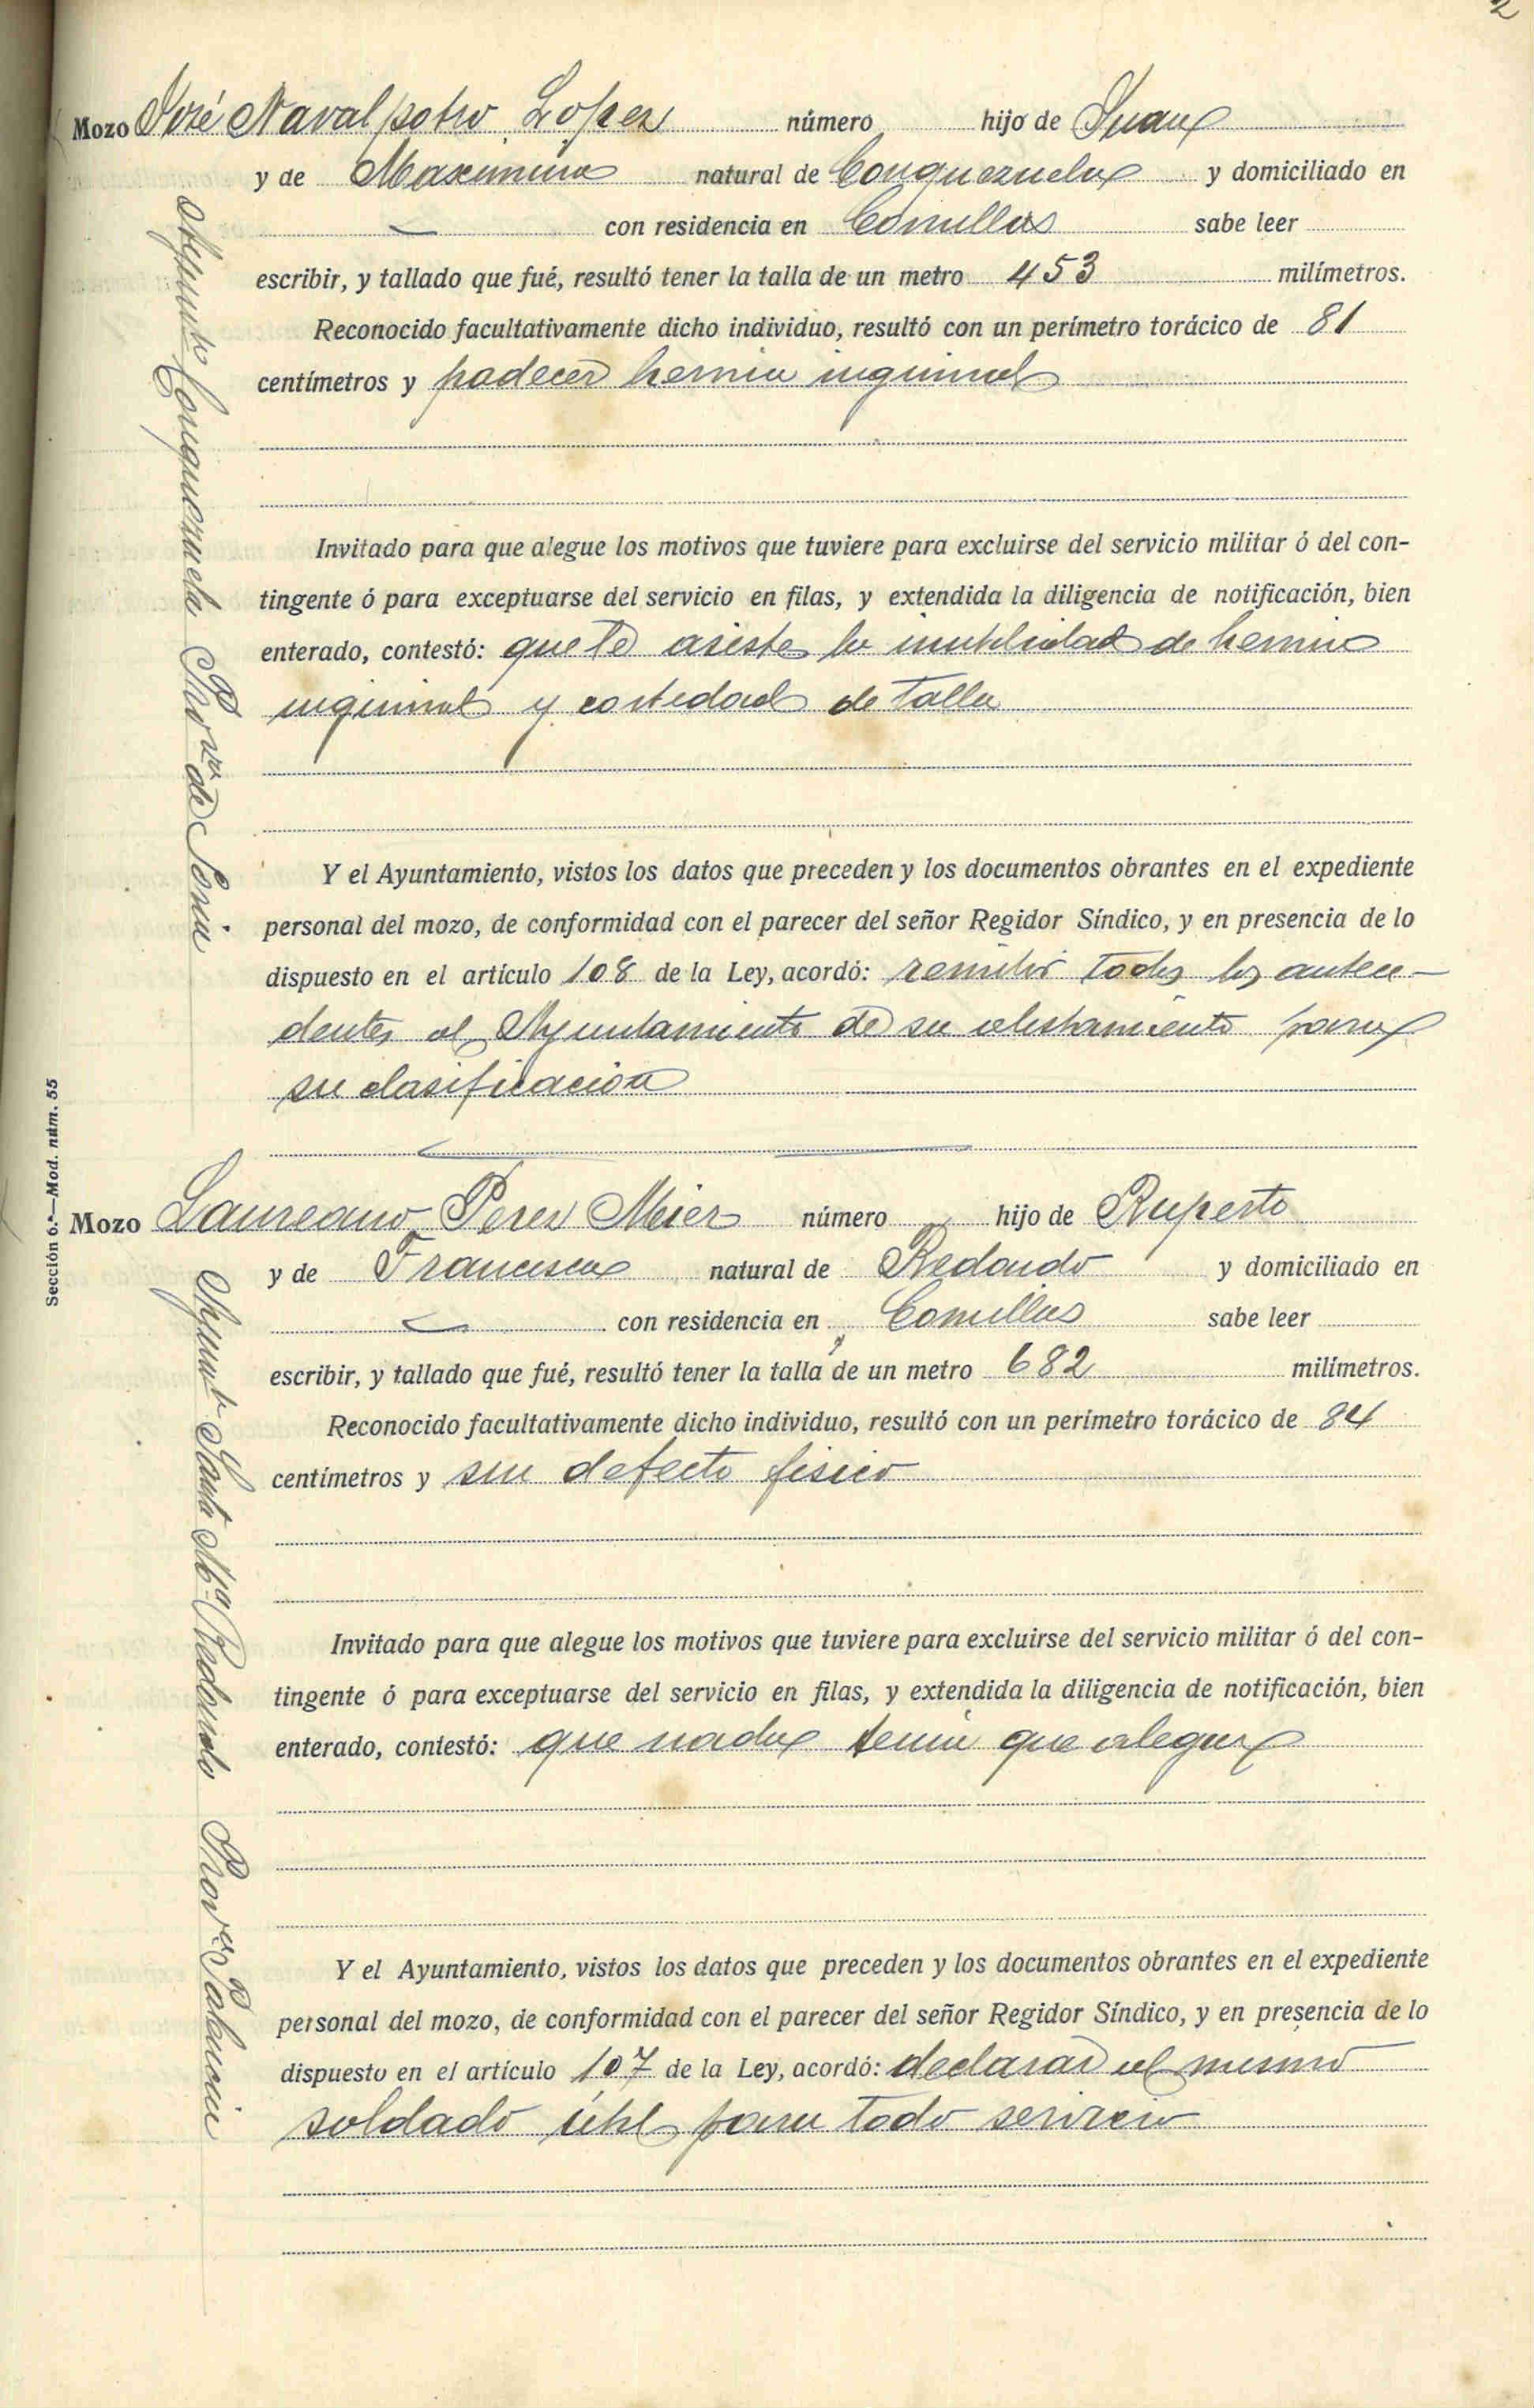 2
Mozo José Navalpotro Lopez número hijo de Juan
y de Maximina natural de Conquezuela y domiciliado en
— con residencia en Comillas sabe leer
escribir, y tallado que fué, resultó tener la talla de un metro 453 milímetros.
Reconocido facultativamente dicho individuo, resultó con un perímetro torácico de 81
centímetros y padecer hernia inguinal
Invitado para que alegue los motivos que tuviere para excluirse del servicio militar ó del con-
tingente ó para exceptuarse del servicio en filas, y extendida la diligencia de notificación, bien
enterado, contestó: que le asiste la inutilidad de hernia
inguinal y cortedad de talla
Y el Ayuntamiento, vistos los datos que preceden y los documentos obrantes en el expediente
personal del mozo, de conformidad con el parecer del señor Regidor Síndico, y en presencia de lo
dispuesto en el artículo 108 de la Ley, acordó: remitir todos los antece-
dentes al Ayuntamiento de su alistamiento para
su clasificacion
Ayunto Conquezuela Prova de Soria
Sección 6.ª—Mod. núm. 55
Mozo Laureano Perez Mier número hijo de Ruperto
y de Francisca natural de Redondo y domiciliado en
— con residencia en Comillas sabe leer
escribir, y tallado que fué, resultó tener la talla de un metro 682 milímetros.
Reconocido facultativamente dicho individuo, resultó con un perímetro torácico de 84
centímetros y sin defecto fisico
Invitado para que alegue los motivos que tuviere para excluirse del servicio militar ó del con-
tingente ó para exceptuarse del servicio en filas, y extendida la diligencia de notificación, bien
enterado, contestó: que nada tenia que alegar
Y el Ayuntamiento, vistos los datos que preceden y los documentos obrantes en el expediente
personal del mozo, de conformidad con el parecer del señor Regidor Síndico, y en presencia de lo
dispuesto en el artículo 107 de la Ley, acordó: declarar al mismo
soldado útil para todo servicio
Ayunto Santa Mª Redondo Prova Palencia